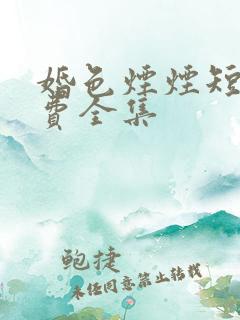 婚色煙煙短
費全集
鲍捷
未经同意禁止转载